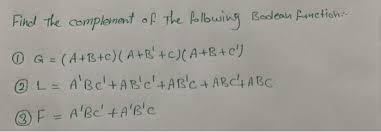 Find the complement of the following Boolean function:-
① G = (A+B+C)(A+B'+C)(A+B+C')
② L = A'BC'+AB'C'+AB'C+ABC'+ABC
③ F = A'BC'+A'B'C